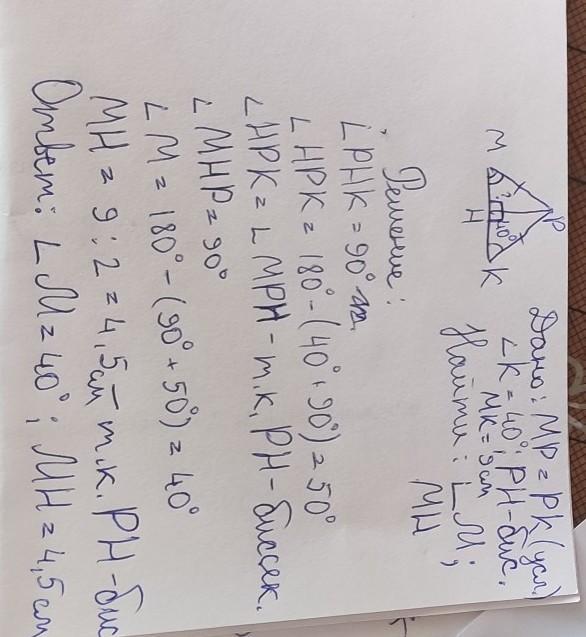 Дано: MP = PK (усл.)
∠K = 40°; PH - бис.
MK = 9 см
Найти: ∠M;
MH
M
P
H
K
40°
?
Решение:
∠PHK = 90°
∠HPK = 180° - (40° + 90°) = 50°
∠HPK = ∠MPH - т.к. PH - биссек.
∠MHP = 90°
∠M = 180° - (90° + 50°) = 40°
MH = 9 : 2 = 4,5 см - т.к. PH - бис
Ответ: ∠M = 40°; MH = 4,5 см